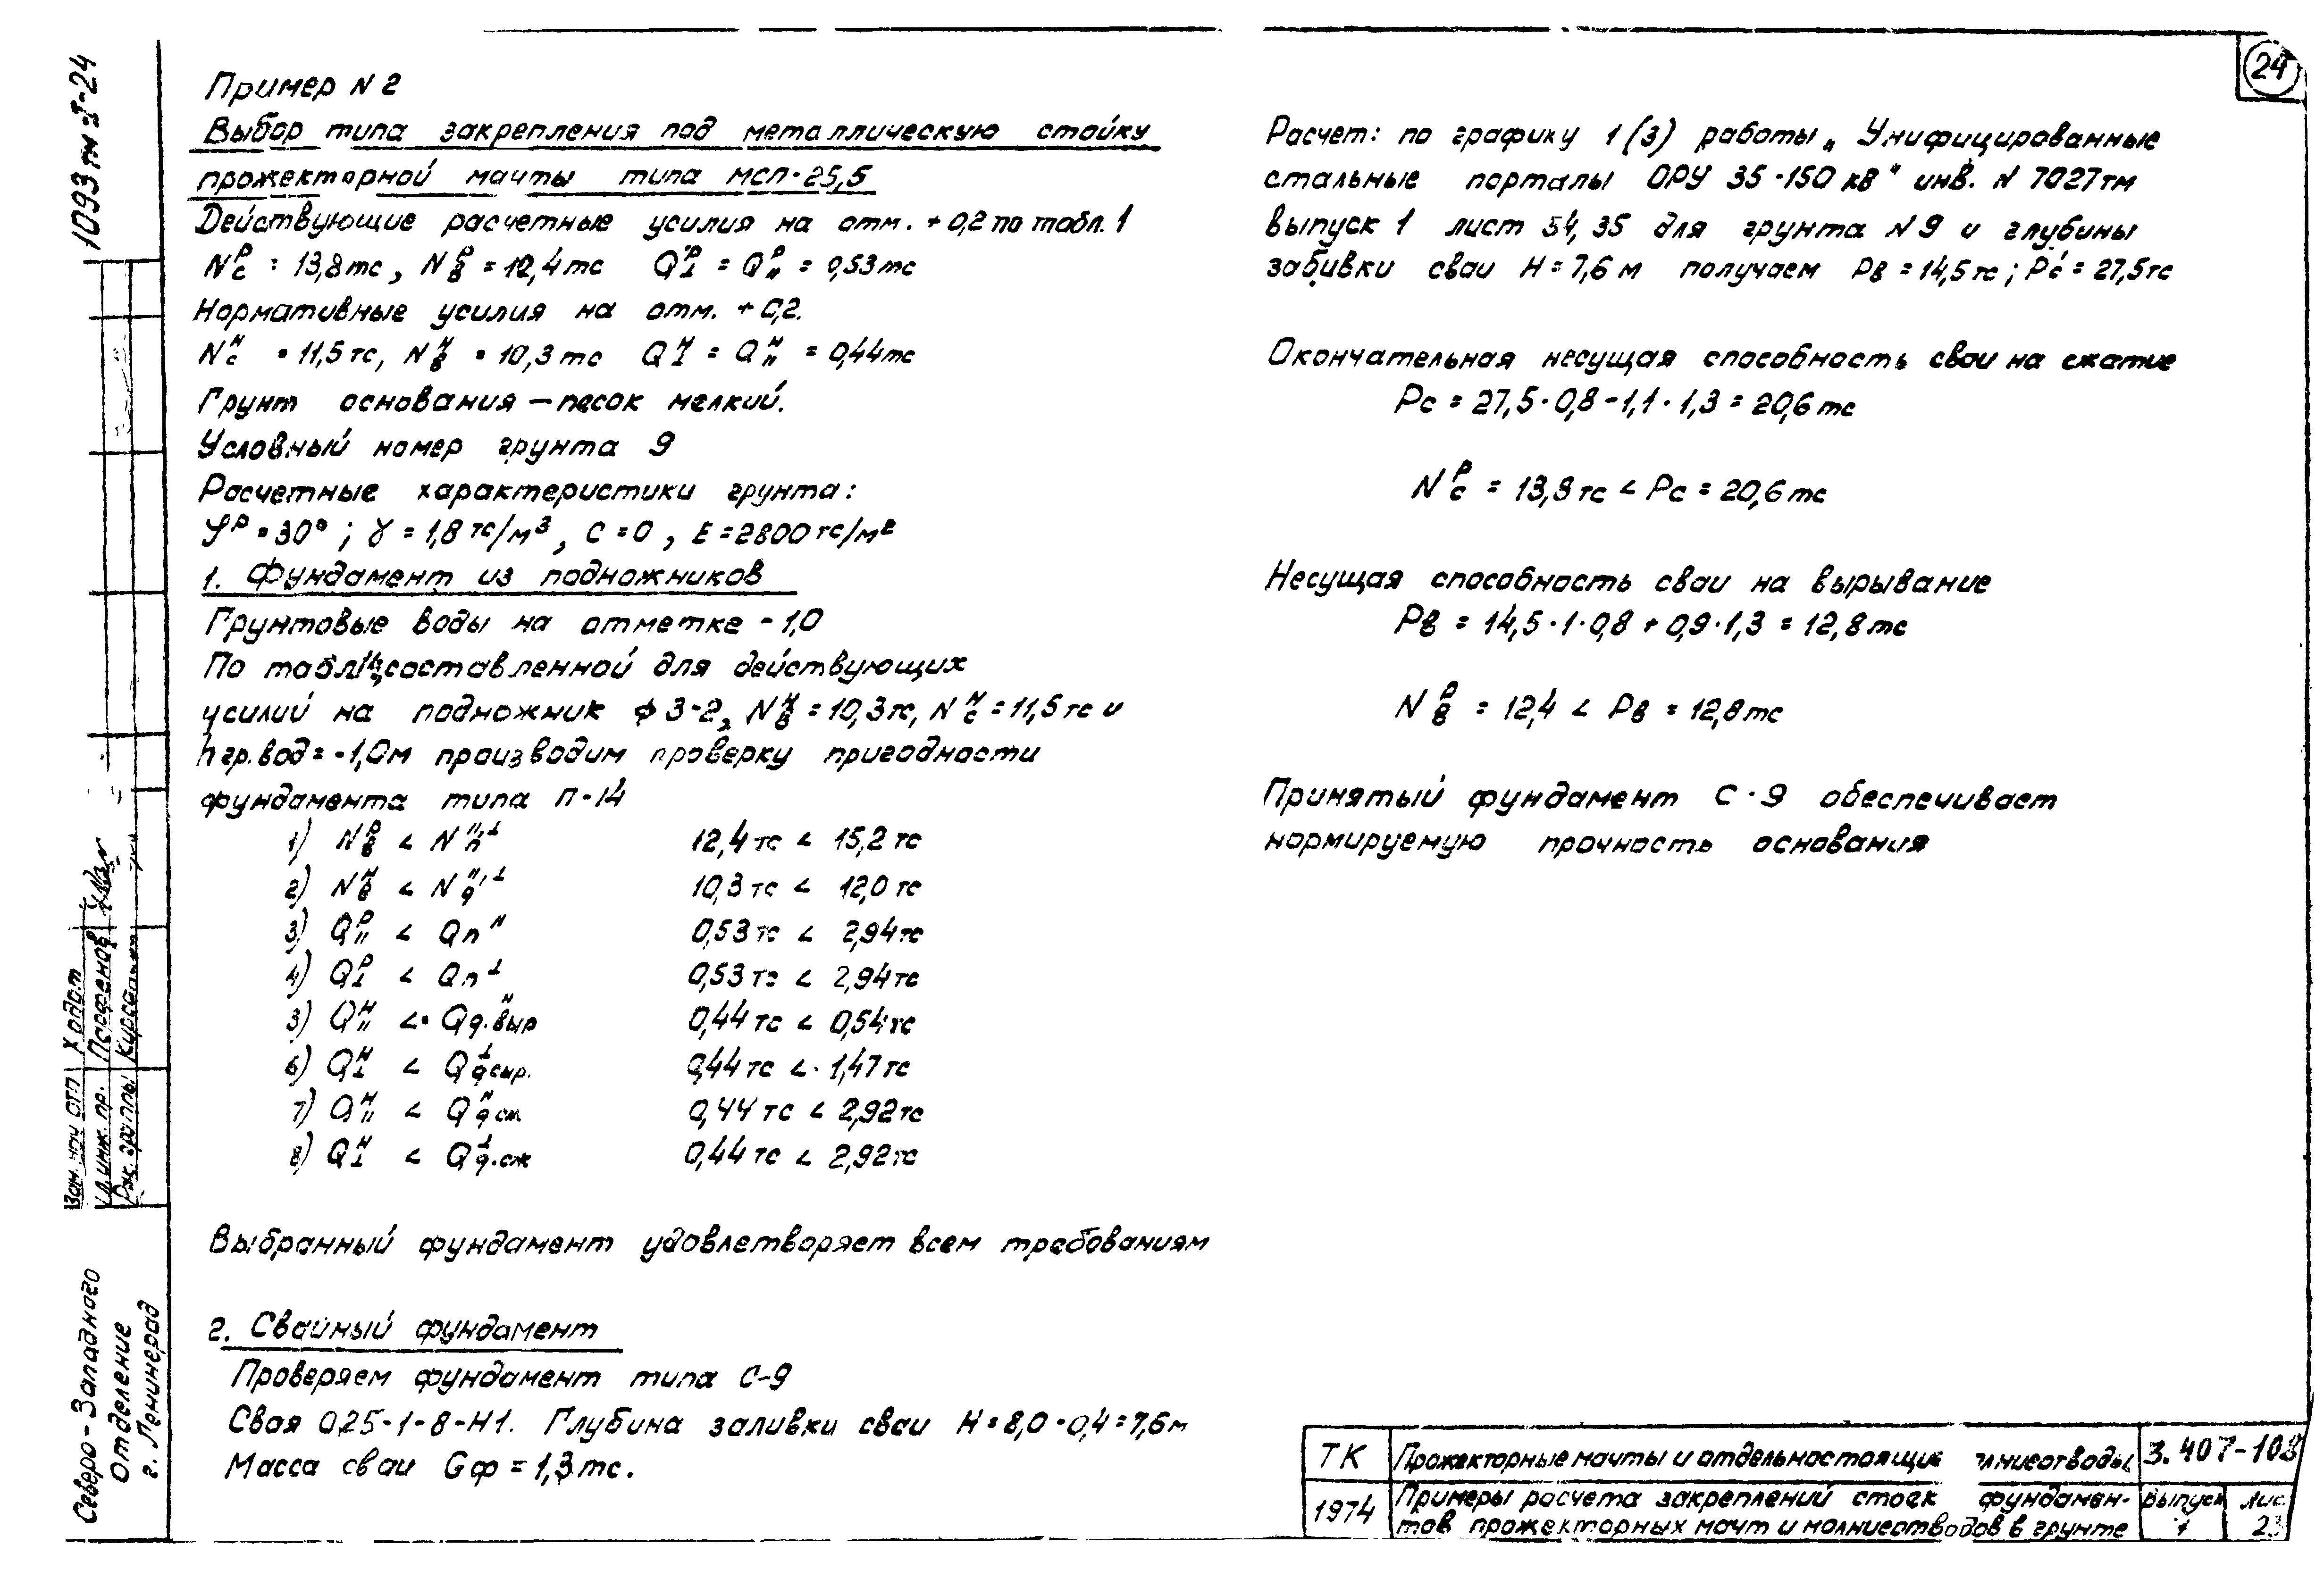 Пример N 2
Выбор типа закрепления под металлическую стойку
прожекторной мачты типа МСП-25,5
Действующие расчетные усилия на отм. +0,2 по табл. 1
N^р_с = 13,8тс, N^р_в = 12,4тс Q^р_⊥ = Q^р_॥ = 0,53тс
Нормативные усилия на отм. +0,2.
N^н_с = 11,5тс, N^н_в = 10,3тс Q^н_⊥ = Q^н_॥ = 0,44тс
Грунт основания — песок мелкий.
Условный номер грунта 9
Расчетные характеристики грунта:
φ^р = 30°; γ = 1,8 тс/м³, С = 0, Е = 2800 тс/м²
1. Фундамент из подножников
Грунтовые воды на отметке -1,0
По табл.14, составленной для действующих
усилий на подножник ф 3-2, N^н_в = 10,3тс, N^н_с = 11,5тс и
h гр.вод = -1,0м производим проверку пригодности
фундамента типа П-14
1) N^р_в < N^॥,⊥_п 12,4тс < 15,2тс
2) N^н_в < N^॥,⊥_д 10,3тс < 12,0тс
3) Q^р_॥ < Qп^॥ 0,53тс < 2,94тс
4) Q^р_⊥ < Qп^⊥ 0,53тс < 2,94тс
5) Q^н_॥ < Q^॥_д.выр 0,44тс < 0,54тс
6) Q^н_⊥ < Q^⊥_д.выр. 0,44тс < 1,47тс
7) Q^н_॥ < Q^॥_д.сж 0,44тс < 2,92тс
8) Q^н_⊥ < Q^⊥_д.сж 0,44тс < 2,92тс
Выбранный фундамент удовлетворяет всем требованиям
2. Свайный фундамент
Проверяем фундамент типа С-9
Свая 0,25-1-8-Н1. Глубина заливки сваи Н = 8,0-0,4 = 7,6м
Масса сваи Gф = 1,3тс.
24
Расчет: по графику 1(3) работы „Унифицированные
стальные порталы ОРУ 35-150 кв" инв. N 7027тм
выпуск 1 лист 54, 35 для грунта N9 и глубины
забивки сваи Н = 7,6м получаем Рв = 14,5тс; Р'с = 27,5тс
Окончательная несущая способность сваи на сжатие
Рс = 27,5·0,8-1,1·1,3 = 20,6тс
N^р_с = 13,8тс < Рс = 20,6тс
Несущая способность сваи на вырывание
Рв = 14,5·1·0,8+0,9·1,3 = 12,8тс
N^р_в = 12,4 < Рв = 12,8тс
Принятый фундамент С-9 обеспечивает
нормируемую прочность основания
ТК Прожекторные мачты и отдельностоящие 3.407-108
1974 Примеры расчета закреплений стоек фундамен- Выпуск Лис
тов прожекторных мачт и молниеотводов в грунте 1 23
1093тм-I-24
Зам. нач ОТП Ходот
Гл.инж.пр. Парфенов
Рук. группы
Северо-Западного
Отделение
г. Ленинград